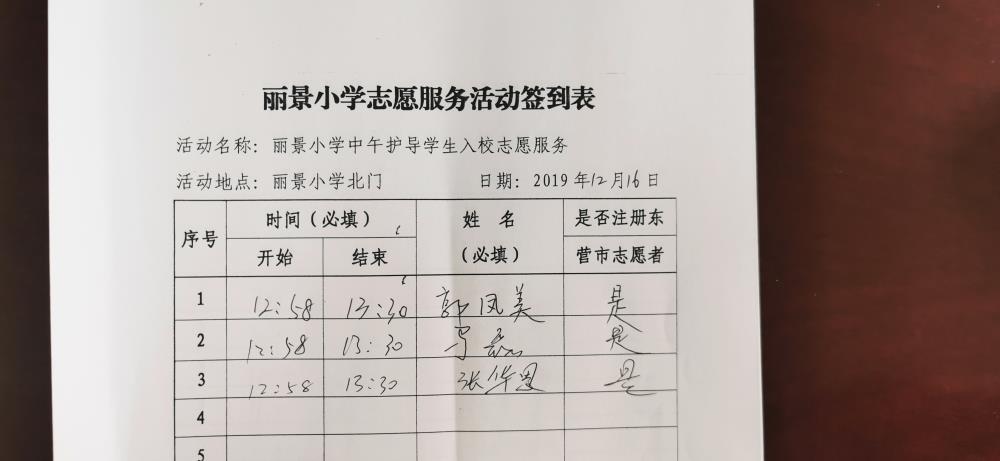 丽景小学志愿服务活动签到表
活动名称：丽景小学中午护导学生入校志愿服务
活动地点：丽景小学北门 日期：2019年12月16日
序号 时间（必填） 姓名（必填） 是否注册东营市志愿者
开始 结束
1 12:58 13:30 郭凤美 是
2 12:58 13:30 是
3 12:58 13:30 张华 是
4
5